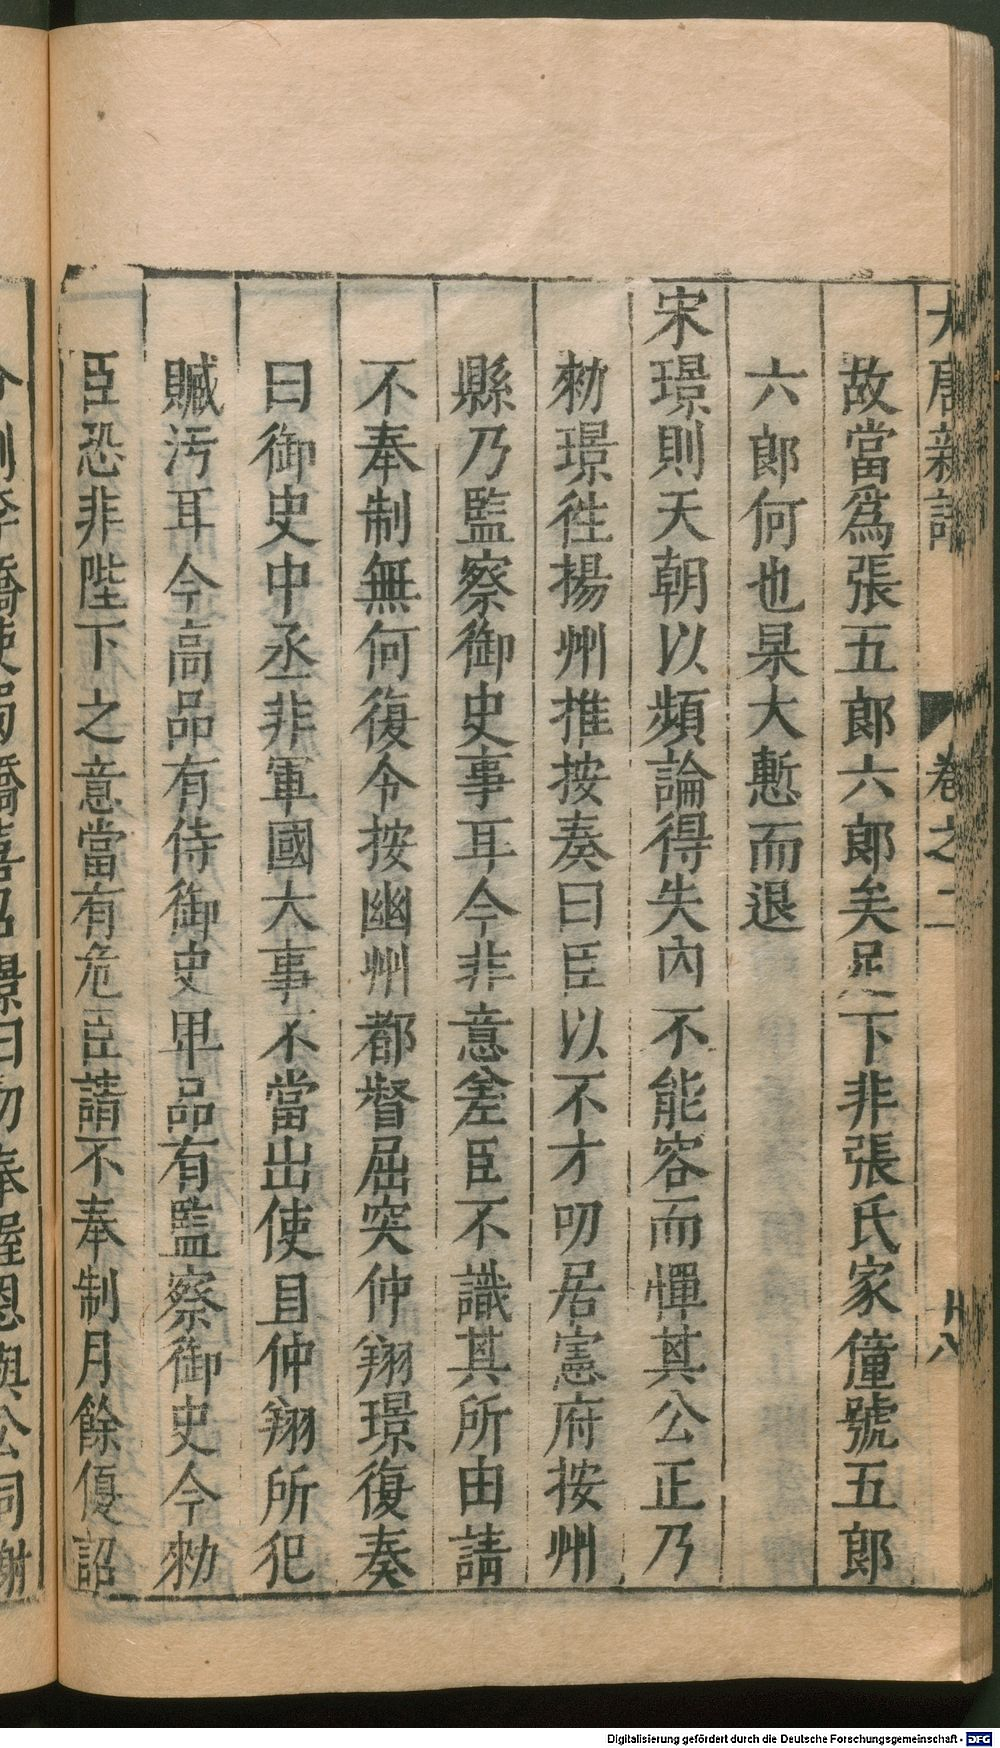 大唐新語
卷之二
十八
故當爲張五郎六郎矣足下非張氏家僮號五郎
六郎何也杲大慙而退
宋璟則天朝以頻論得失內不能容而憚其公正乃
勑璟徃揚州推按奏曰臣以不才叨居憲府按州
縣乃監察御史事耳今非意差臣不識其所由請
不奉制無何復令按幽州都督屈突仲翔璟復奏
曰御史中丞非軍國大事不當出使且仲翔所犯
贓汚耳今高品有侍御史卑品有監察御史今勑
臣恐非陛下之意當有危臣請不奉制月餘優詔
璟曰勿奉
恩與公同謝
Digitalisierung gefördert durch die Deutsche Forschungsgemeinschaft - DFG